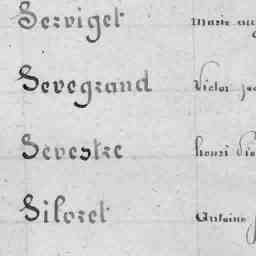 Serviget Marie
Sevegrand Victor
Sevestre henri
Siloret Antoine